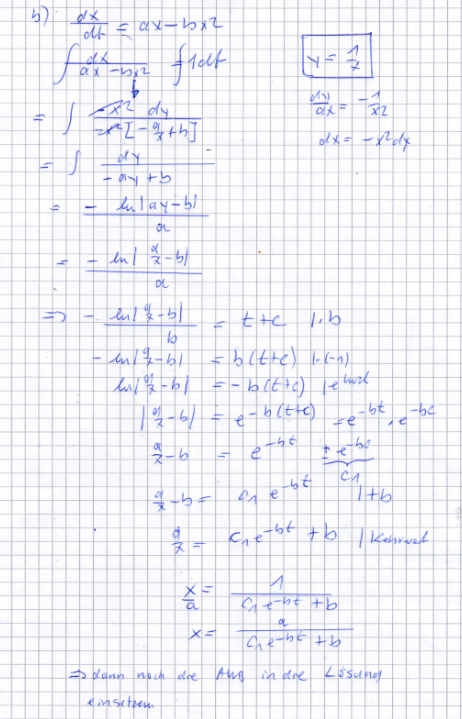 b) dx/dt = ax - bx2
∫ dx/(ax - bx2) ∫ 1dt
y = 1/x
dy/dx = -1/x2
dx = -x2dy
= ∫ -x2 dy / -x2[-a/x + b]
= ∫ dy / (-ay + b)
= - ln|ay - b| / a
= - ln|a/x - b| / a
=> - ln|a/x - b| / b = t+c |·b
- ln|a/x - b| = b(t+c) |·(-1)
ln|a/x - b| = -b(t+c) |e hoch
|a/x - b| = e^-b(t+c) = e^-bt · e^-bc
a/x - b = e^-bt ± e^-bc
C1
a/x - b = C1 e^-bt |+b
a/x = C1 e^-bt + b | Kehrwert
x/a = 1 / (C1 e^-bt + b)
x = a / (C1 e^-bt + b)
=> dann noch die AWB in die Lösung
einsetzen.